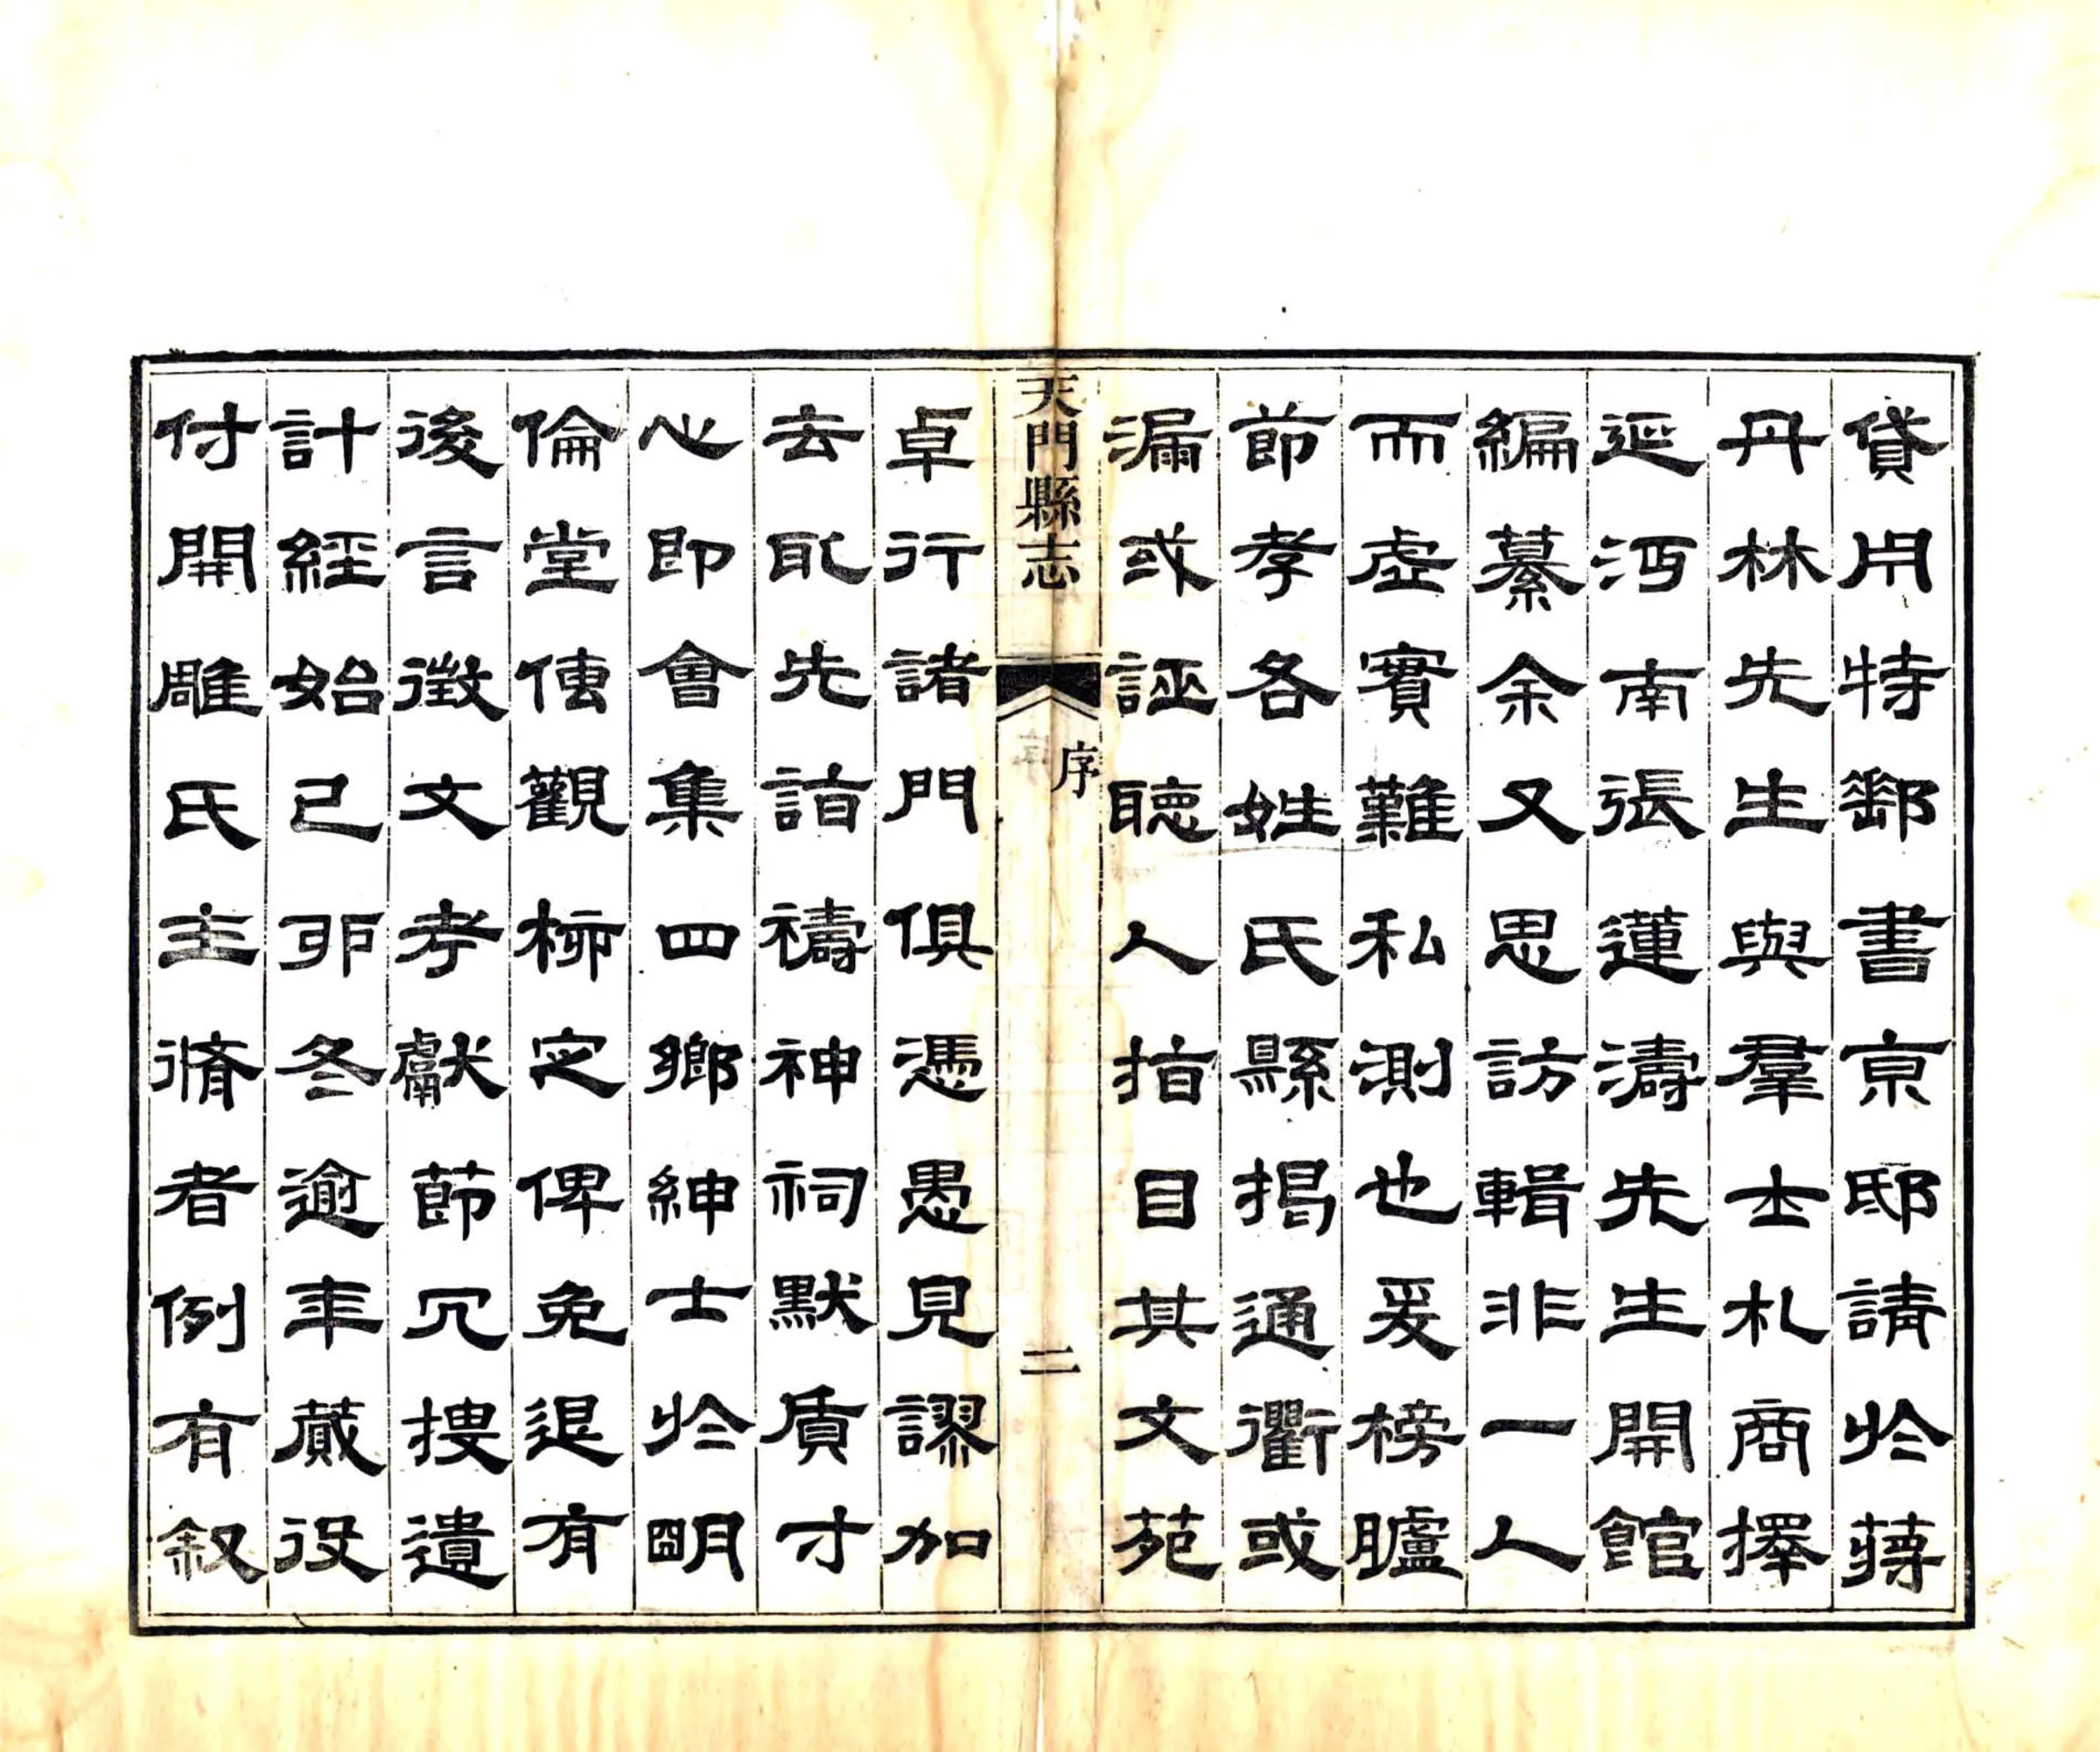 貸用特郵書京邸請於蔣
丹林先生與羣士札商擇
延沔南張蓮濤先生開館
編纂余又思訪輯非一人
而虛實難私測也爰榜臚
節孝各姓氏縣揭通衢或
漏或誣聽人指目其文苑
天門縣志
序
二
卓行諸門俱憑愚見謬加
去取先詣禱神祠默質才
心即會集四鄉紳士於明
倫堂傳觀桺定俾免退有
後言徵文考獻節冗搜遺
計經始己卯冬逾年蕆役
付開雕氏主脩者例有叙